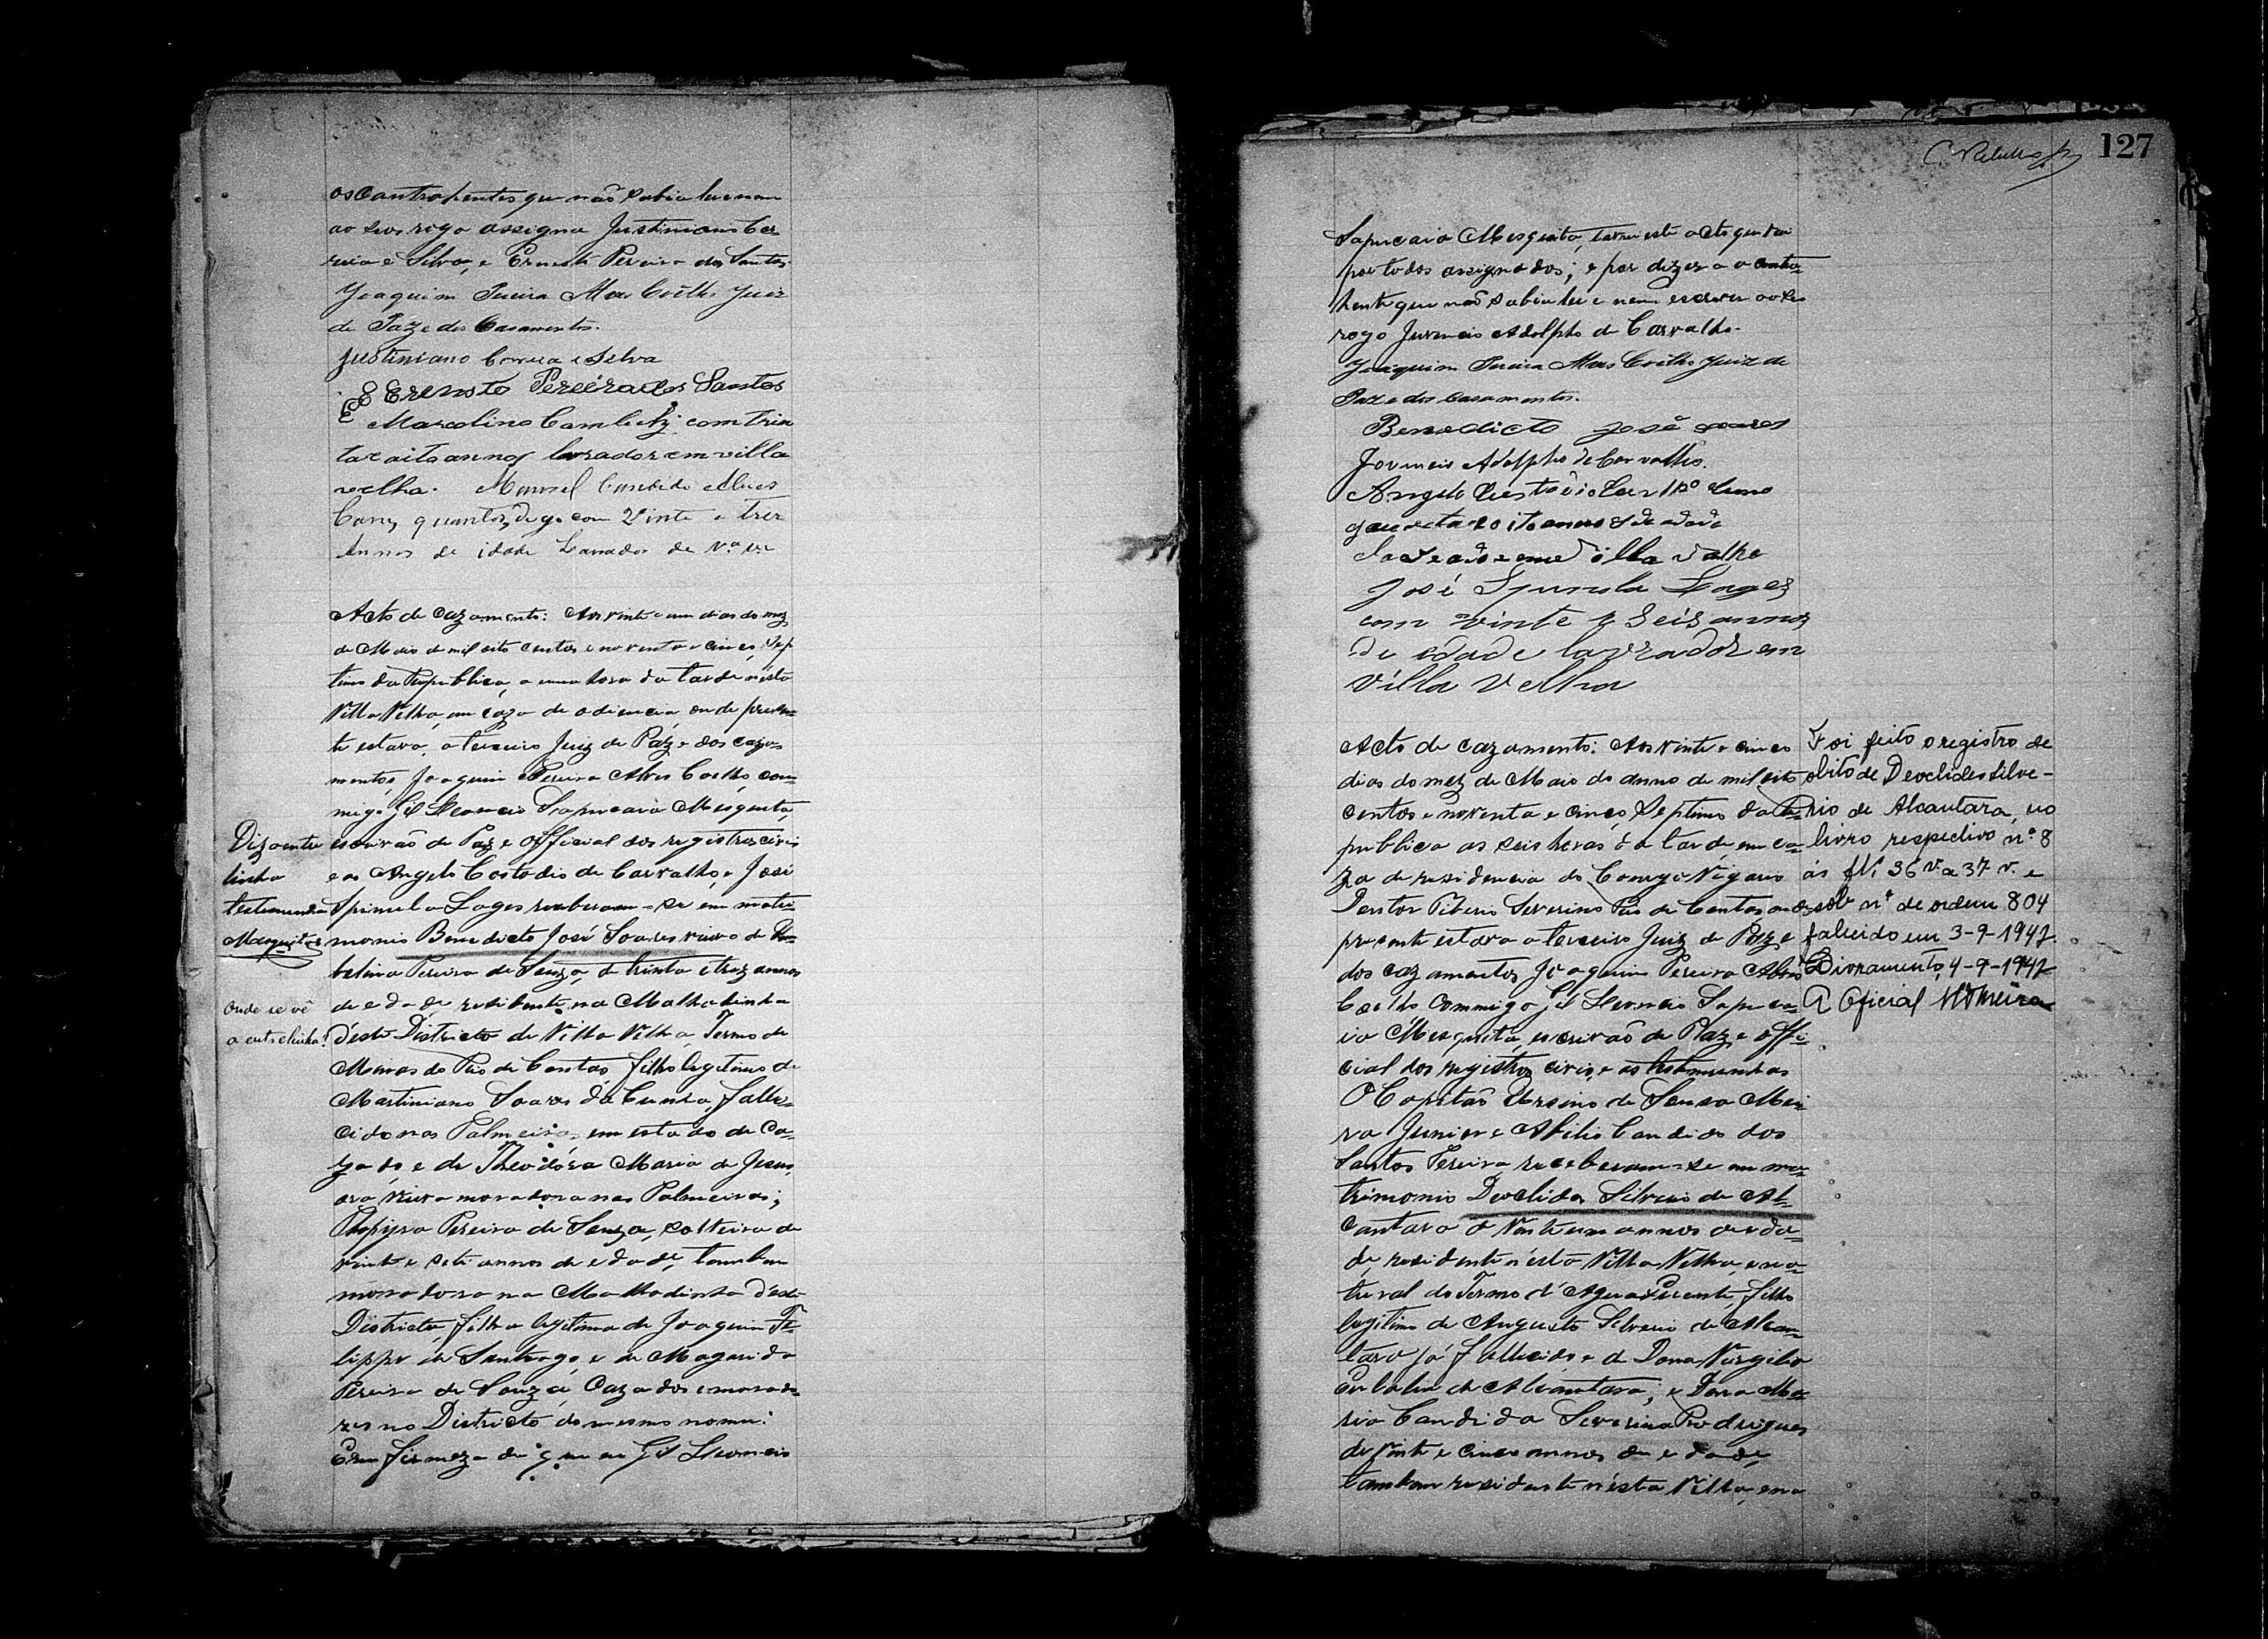 os contrahentes que não sabia ler nem
ao seos rogo assigna Justiniano Cor
reia e Silva, e Ernesto Pereira dos Santos
Joaquim Pereira Alves Coelho Juiz
de Paz e dos Casamentos.
Justiniano Correia e Silva
Ernesto Pereira dos Santos
Marcolino com trin
ta e oito annos lavrador em villa
velha. Manoel Candido Alves
com Vinte e trez
Annos de idade Lavrador de Va. ve
Acto de cazamento: Aos vinte e um dias do mez
de Maio de mil oito centos e noventa e cinco, Sep
timo da Republica, a uma hora da tarde nésta
Villa Velha, em caza de adiencia onde presen=
te estava, o terceiro Juiz de Páz e dos caza=
mentos Joaquim Pereira Alves Coelho, com
migo Gil Leoncio Sapucaia Mesquita,
escrivão de Paz e official dos registros civis
e as Angelo Custodio de Carvalho, e José
Spinula Lages receberam-se em matri=
monio Benedicto José Soares viuvo de
belina Pereira de Souza, de trinta e trez annos
de edade, residente na Malhadinha
déste Districto de Villa Velha, Termo de
Minas do Rio de Contas, filho legitimo de
Martiniano Soares da Cunha, falle=
cido nas Palmeiras, em estado de ca=
zado, e de Theodóra Maria de Jesus,
ora viuva moradora nas Palmeiras;
Pereira de Souza, solteira de
vinte e sete annos de edade, tambem
moradora na Malhadinha déste
Districto, filha legitima de Joaquim Fe=
lippe de Santiago, e de Magarida
Pereira de Souza, Cazados e morado
res no Districto do mesmo nome:
Em firmeza de que eu Gil Leoncio
Diz a entre
linha
testemunhas
Mesquita
Onde se vê
a entrelinha!
127
Sapucaia Mesquita, lavrei este acto que vai
por todos assignados; e por dizer a contra=
hente que não sabia ler e nem escrever ao seo
rogo Juvencio Adolpho de Carvalho.
Joaquim Pereira Alves Coelho Juiz de
Paz e dos Casamentos.
Benedicto José Soares
Jovencio Adolpho de Carvalho.
Angelo Custodio
quareta e oito annos de edade
em Villa Velha
José Spinula Lages
com vinte e seis annos
de edade lavrador em
Villa Velha
Acto de cazamento: Aos vinte e cinco
dias do mez de Maio do anno de mil oito
centos e noventa e cinco, Septimo da Re=
publica as seis horas da tarde, em ca=
za de residencia do Conego Vigario
Doutor Tiberio Severino Rio de Contas, onde
presente estava o terceiro Juiz de Paz e
dos cazamentos Joaquim Pereira Alves
Coelho Commigo Gil Leoncio Sapuca
ia Mesquita, escrivão de Paz e offi=
cial dos registros civis, e as testemunhas
O Capitão Ursino de Souza Mei
ra Junior e Abilio Candido dos
Santos Pereira, receberam-se em ma=
trimonio Deoclides Silverio de Al=
cantara de Vinte um annos de eda=
de, residente n'ésta Villa Velha, e na=
tural do Termo d'Agua Quente, filho
legitimo de Augusto Silverio de Alcan=
tara já fallecido e de Dona Virgilia
de Alcantara; e Dona Ma=
ria Candida Severina Rodrigues
de Vinte e cinco annos de edade,
tambem residente n'ésta Villa, e na
Foi feito o registro de
obito de Deoclides Silve-
rio de Alcantara, no
livro respectivo nº. 8
ás fls. 36 v. a 37 v. e
sob nº de ordem 804
falecido em 3-9-1947
Livramento, 4-9-1947
A Oficial